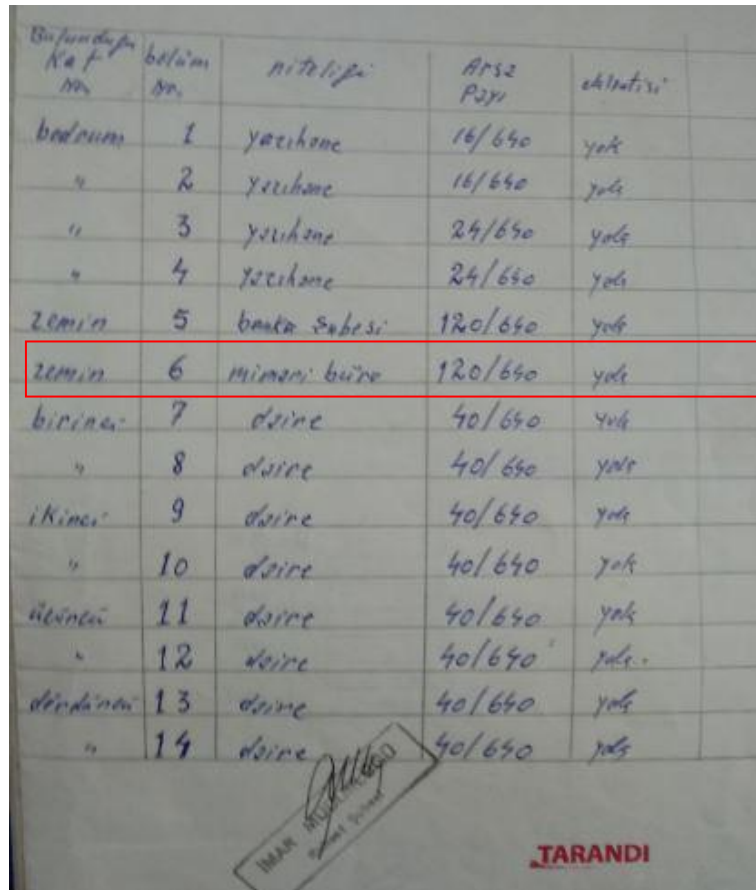 Bulunduğu Kat No, bölüm No. niteliği Arsa Payı eklentisi
bodrum 1 yazıhane 16/640 yok
" 2 yazıhane 16/640 yok
" 3 yazıhane 24/640 yok
" 4 yazıhane 24/640 yok
zemin 5 banka Şubesi 120/640 yok
zemin 6 mimari büro 120/640 yok
birinci 7 daire 40/640 yok
" 8 daire 40/640 yok
ikinci 9 daire 40/640 yok
" 10 daire 40/640 yok
üçüncü 11 daire 40/640 yok
" 12 daire 40/640 yok.
dördüncü 13 daire 40/640 yok
" 14 daire 40/640 yok
İMAR
TARANDI